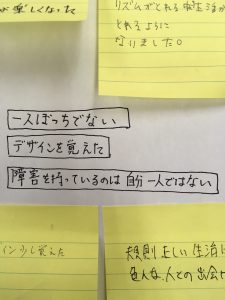 が楽しくなった
リズムがとれる
とれるように
なりました。
一人ぼっちでない
デザインを覚えた
障害を持っているのは自分一人ではない
イン少し覚えた
規則正しい生活
色んな人との出会